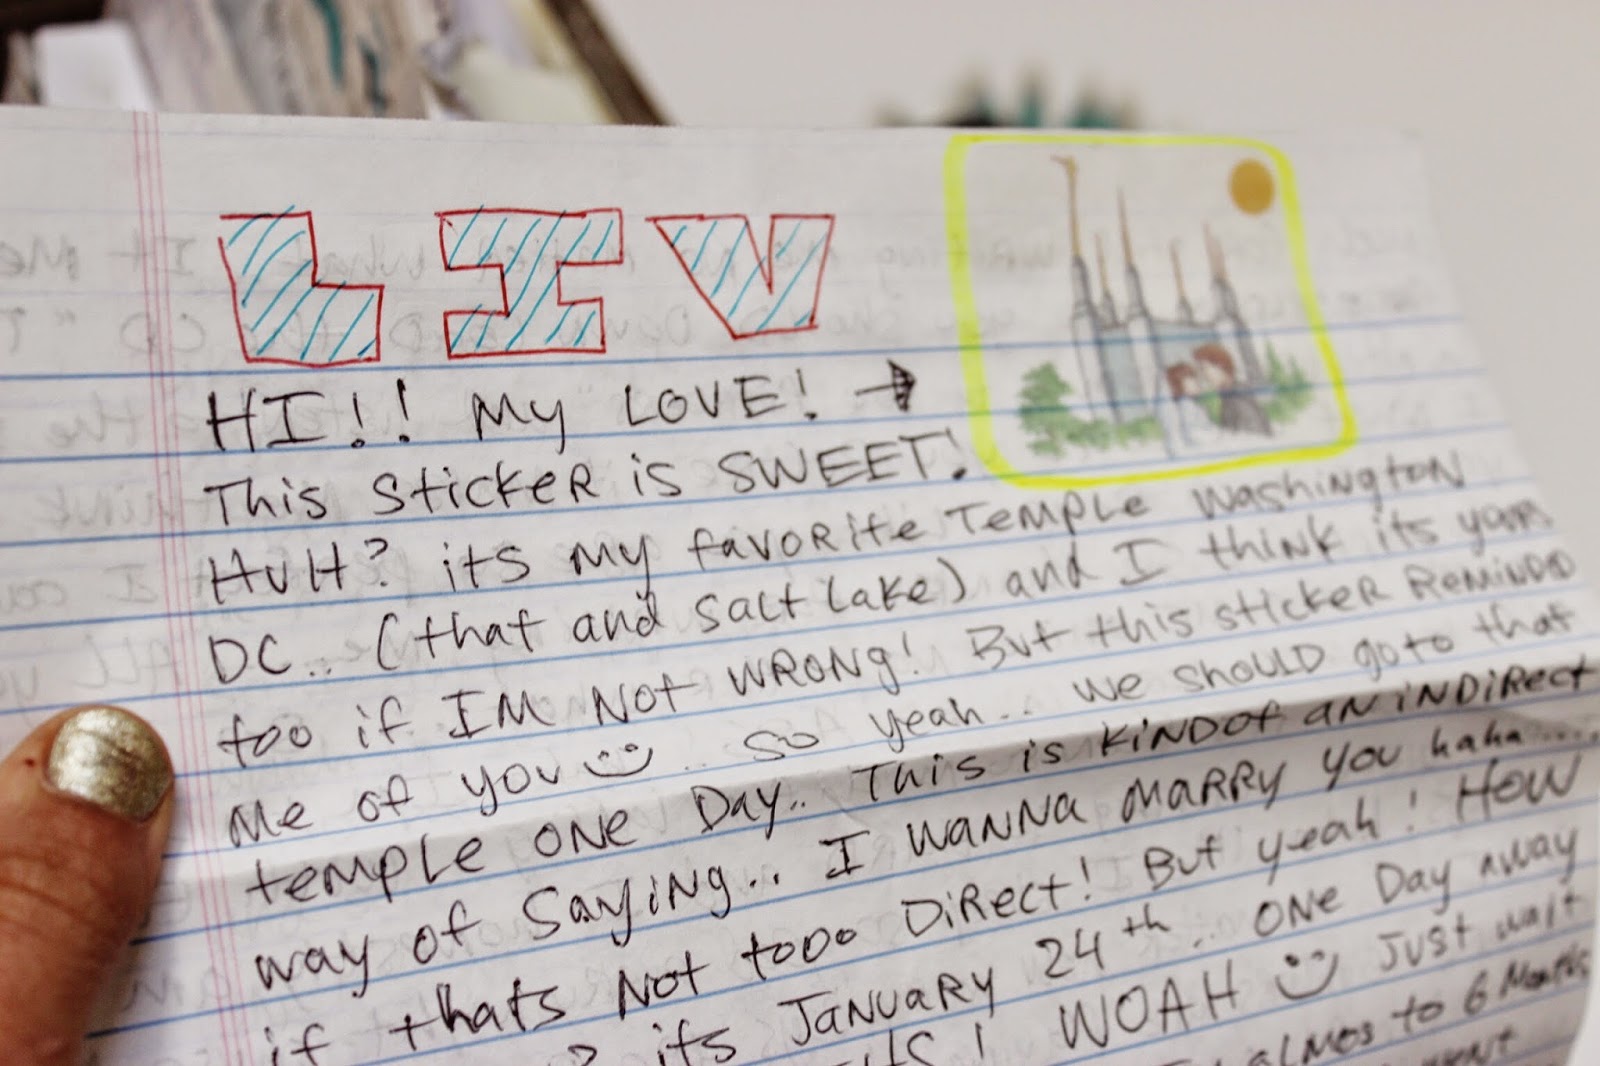 LIV
HI!! My LOVE! →
This sticker is SWEET!
HUH? its my favorite Temple Washington
DC.. (that and Salt Lake) and I think its yours
too if IM NOT WRONG! But this sticker REMINDED
Me of you .. so yeah.. we should go to that
temple ONE Day.. This is KINDOf AN iNDiRect
way of Saying.. I WANNA MARRY you haha.....
if thats Not tooo DiRect! But yeah! HOW
its JANUARY 24th.. ONE Day away
! WOAH Just wait
almos to 6 Months